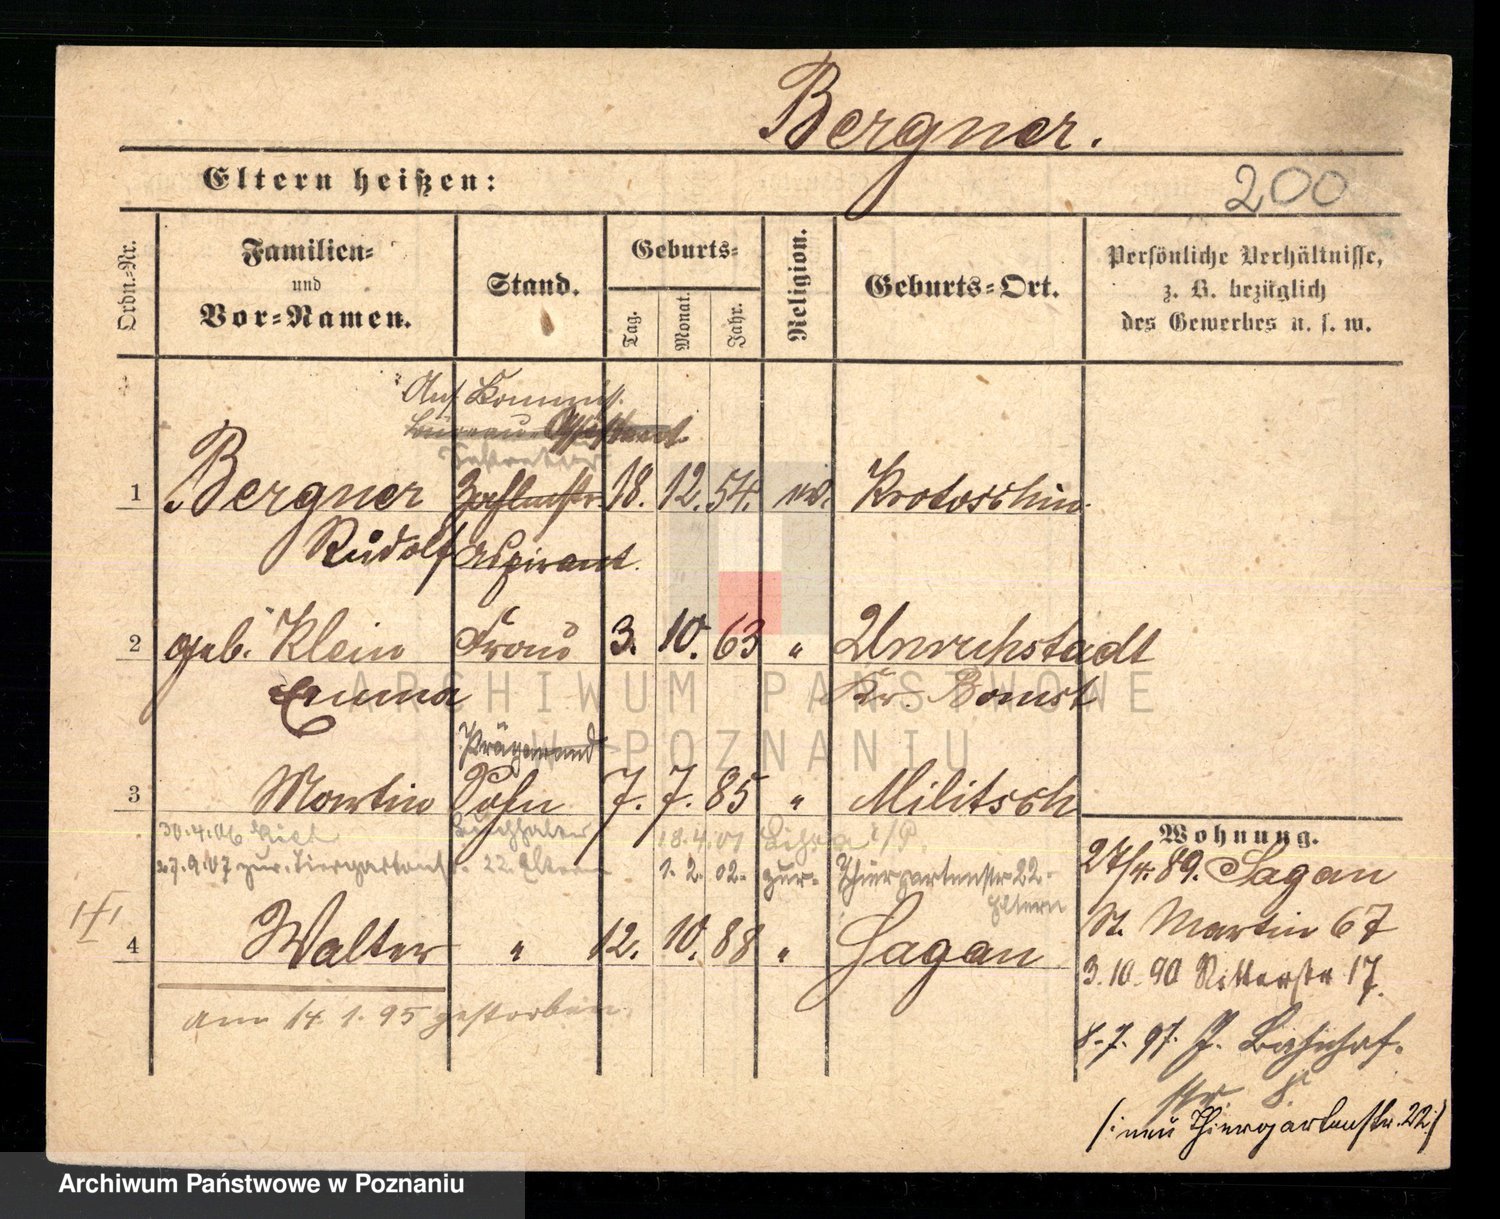 Bergner.
Eltern heißen:
200
Ordn.-Nr.
Familien-
und
Vor-Namen.
Stand.
Geburts-
Tag.
Monat.
Jahr.
Religion.
Geburts-Ort.
Persönliche Verhältnisse,
z. B. bezüglich
des Gewerbes u. s. w.
Bureau Assistent
1 Bergner 18. 12. 54. ev. Krotoschin
Rudolf Aspirant.
2 geb. Klein Frau 3. 10. 63 " Unruhstadt
Emma Kr. Bomst
3 Martin Sohn 7. 7. 85 " Militsch
30.4.06 Buchhalter 18.4.01
27.9.07 zur. Tiergartenstr. 22. Eltern 1. 2. 02. zur. Thiergartenstr. 22.
Eltern
4 Walter " 12. 10. 88 " Sagan
am 14.1.95 gestorben.
Wohnung.
27/4. 89. Sagan
St. Martin 67
3.10.90 Ritterstr 17.
8.7.97. Bahnhof-
str. 8.
(: neu Thiergartenstr. 22:)
ARCHIWUM PAŃSTWOWE
W POZNANIU
Archiwum Państwowe w Poznaniu